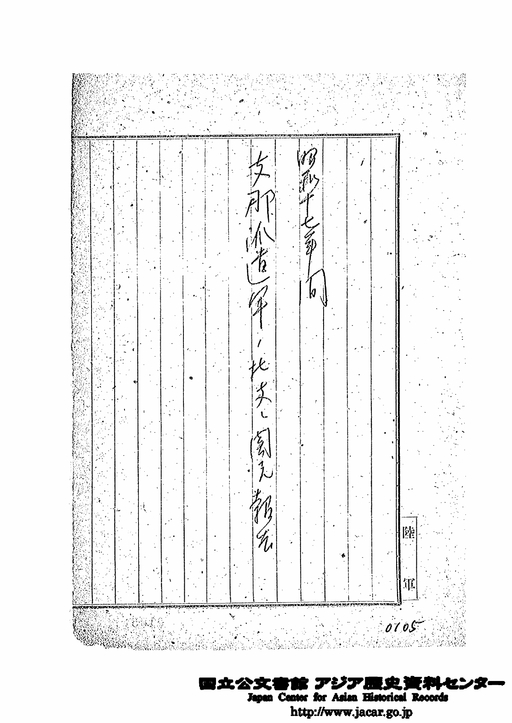 昭和十七年間
支那派遣軍、北支、関元報告
陸軍
0105
国立公文書館 アジア歴史資料センター
Japan Center for Asian Historical Records
http://www.jacar.go.jp